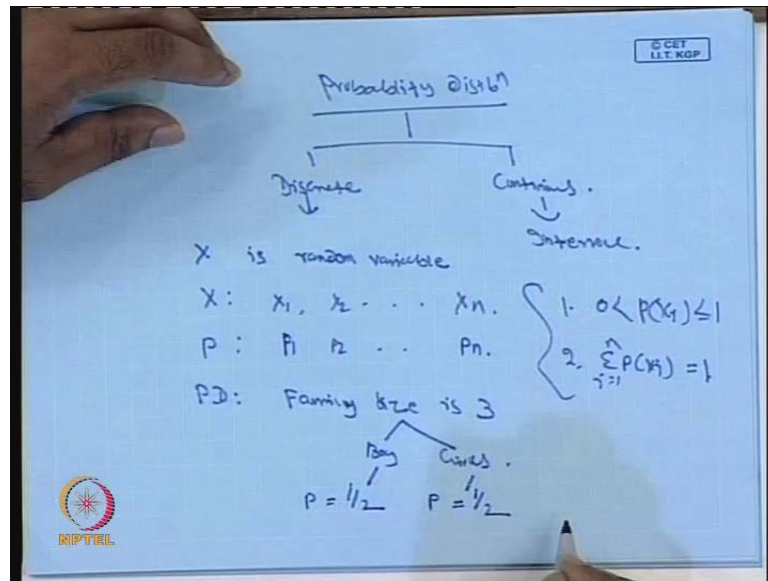 © CET
I.I.T. KGP
Probability Distbⁿ
Discrete Continous.
Interval.
X is random variable
X : x₁, x₂ . . . xn.
P : P₁ P₂ . . Pn.
1. 0 < P(Xi) ≤ 1
2. n Σ i=1 P(xi) = 1
PD: Family size is 3
Boy Girls.
P = 1/2 P = 1/2
NPTEL